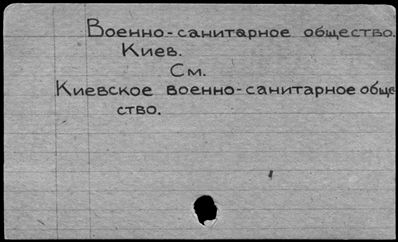 Военно-санитарное общество.
Киев.
См.
Киевское военно-санитарное обще
ство.